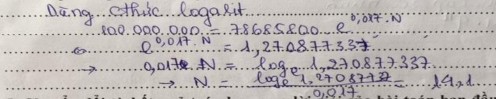 Dùng cthức logarit
100.000.000 = 78685800 . e^0,017.N
⇔ e^0,017.N = 1,270877337
→ 0,017.N = log_e 1,270877337
→ N = log_e 1,270877337 / 0,017 = 14,1.